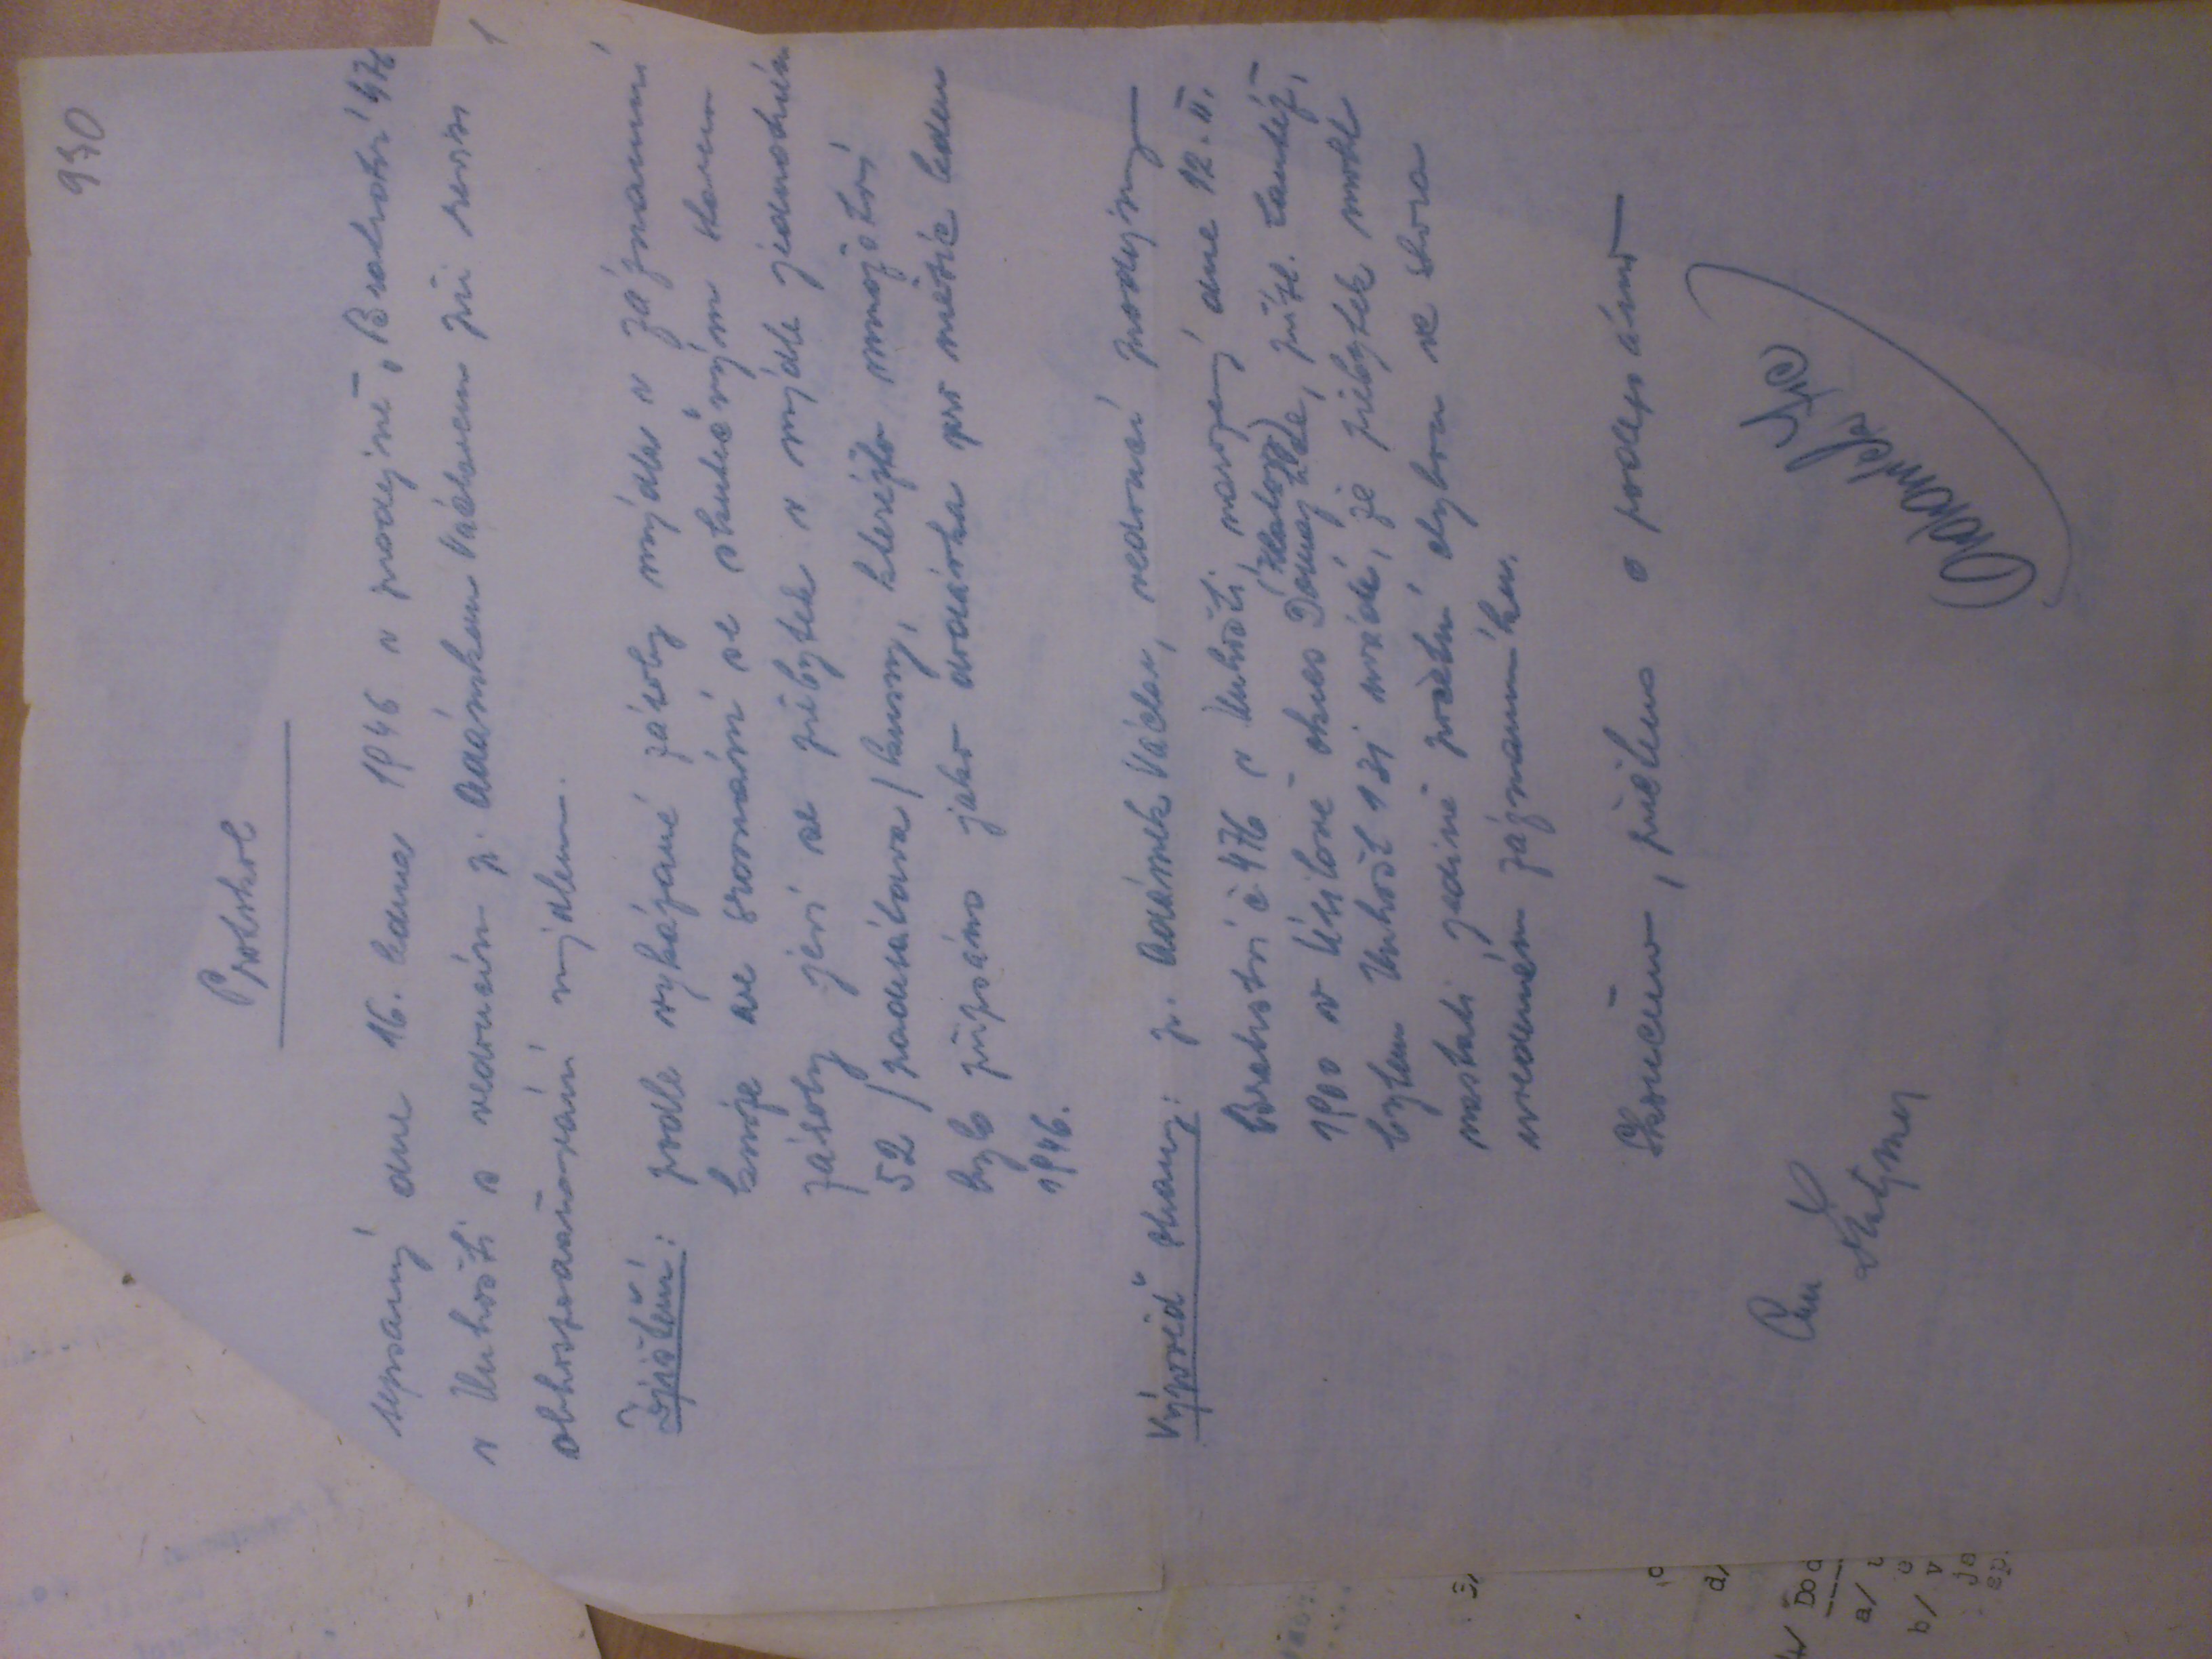 970
Protokol
sepsaný dne 16. ledna 1946 v prodejně „Bratrství" 476
v Unhošti s vedoucím p. Adámkem Václavem při revisi
obhospodařování mýdlem.
Zjištění: podle vykázané zásoby mýdla v záznamní
knize ve srovnání se skutečným stavem
zásoby jeví se přebytek v mýdle jednotném
52 /padesátdva/ kusy, kterýžto množství
bylo připsáno jako dodávka pro měsíc leden
1946.
Výpověď strany: p. Adámek Václav, vedoucí prodejny
Bratrství č 476 v Unhošti, narozený dne 12. II.
(Klatovy)
1900 v Úsilově okres Domažlice, přísl. tamtéž,
bytem Unhošť 131 uvádí, že přebytek mohl
nastati jedině početní chybou ve shora
uvedeném záznamníku.
Skončeno, přečteno a podepsáno
Adámek
3/
d/
4/ Dod
a/
b/ v
ja
sp.